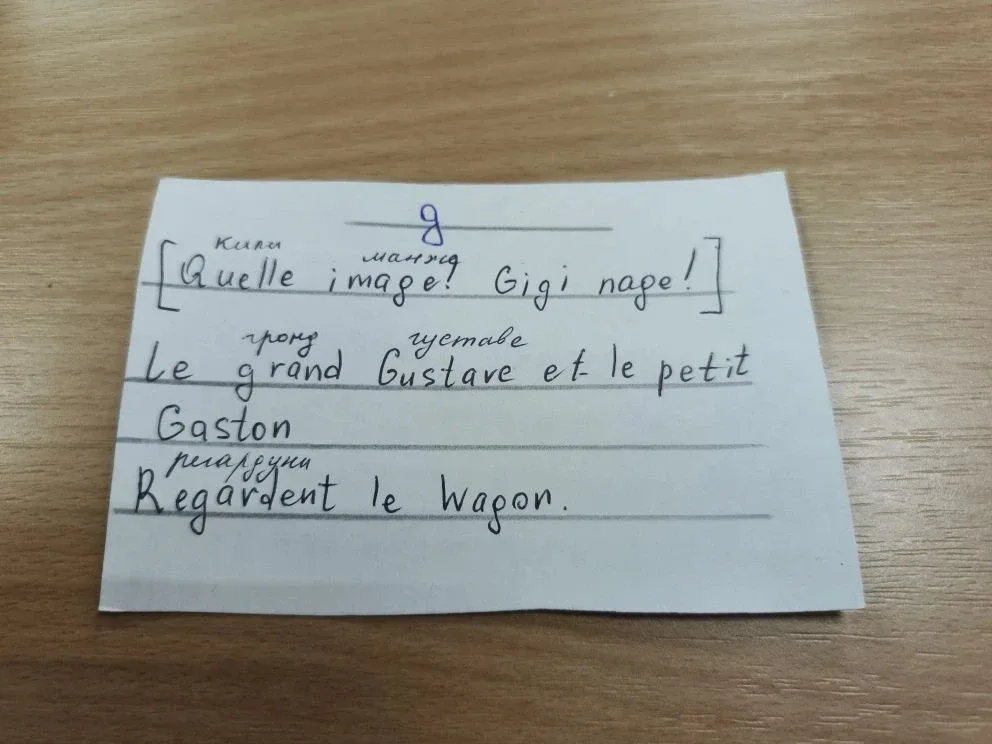 g
Кили манжд
[Quelle image! Gigi nage!]
гронд густаве
Le grand Gustave et le petit
Gaston
регардуни
Regardent le Wagon.